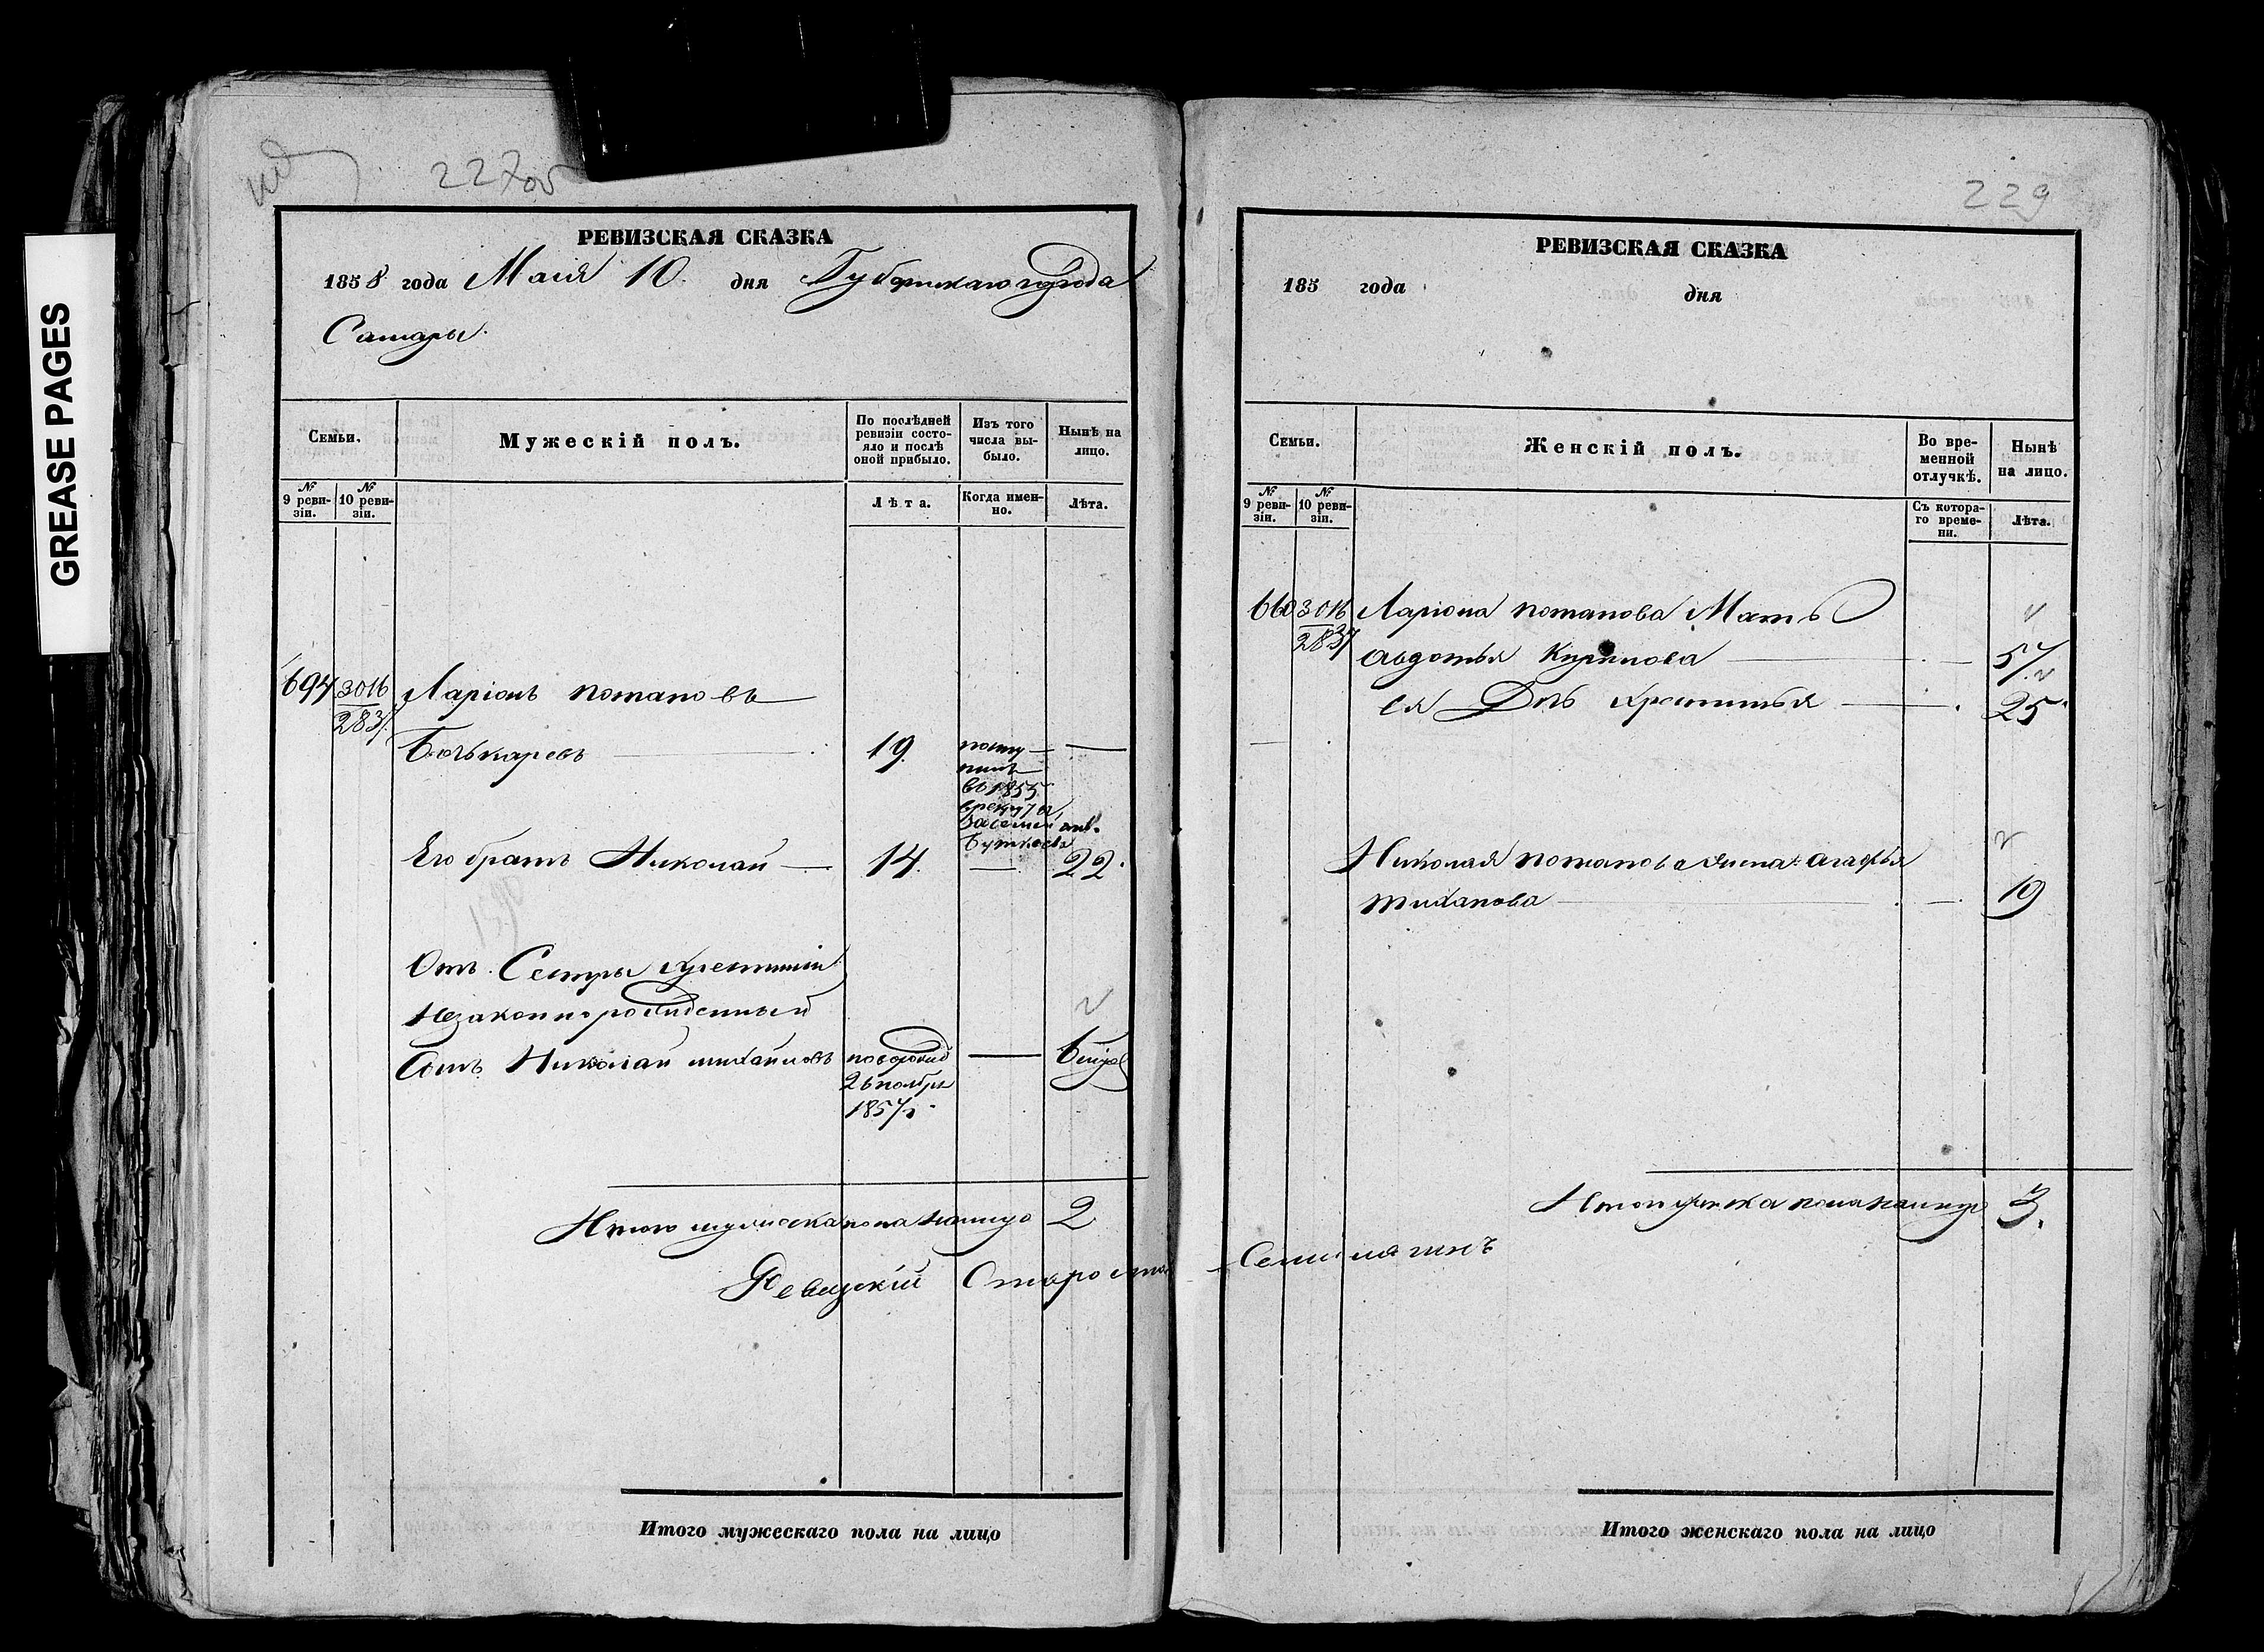 GREASE PAGES
227об
РЕВИЗСКАЯ СКАЗКА
1858 года Маія 10 дня Губернскаго города
Самары.
Семьи.
Мужескій полъ.
По послѣдней ревизіи состояло и послѣ оной прибыло.
Изъ того числа выбыло.
Нынѣ на лицо.
№ 9 ревизіи.
№ 10 ревизіи.
Лѣта.
Когда именно.
Лѣта.
694 3016 Ларіонъ потаповъ
2837
19. посту
пилъ
въ 1855
Его братъ Николай 14. 22.
1590
Отъ Сестры
Незаконнорожденный
Сынъ Николай михайловъ
26 ноября
1857г.
Итого мужеска пола налицо 2
Ревизскій Староста
229
РЕВИЗСКАЯ СКАЗКА
185 года дня
Семьи.
Женскій полъ.
Во временной отлучкѣ.
Нынѣ на лицо.
№ 9 ревизіи.
№ 10 ревизіи.
Съ котораго времени.
Лѣта.
660 3016 Ларіона потапова Мать
2837
авдотья Кирилова 57
ея Дочь 25
Николая потапова жена агафья
19
Итого женска пола налицо 3.
Итого мужескаго пола на лицо
Итого женскаго пола на лицо